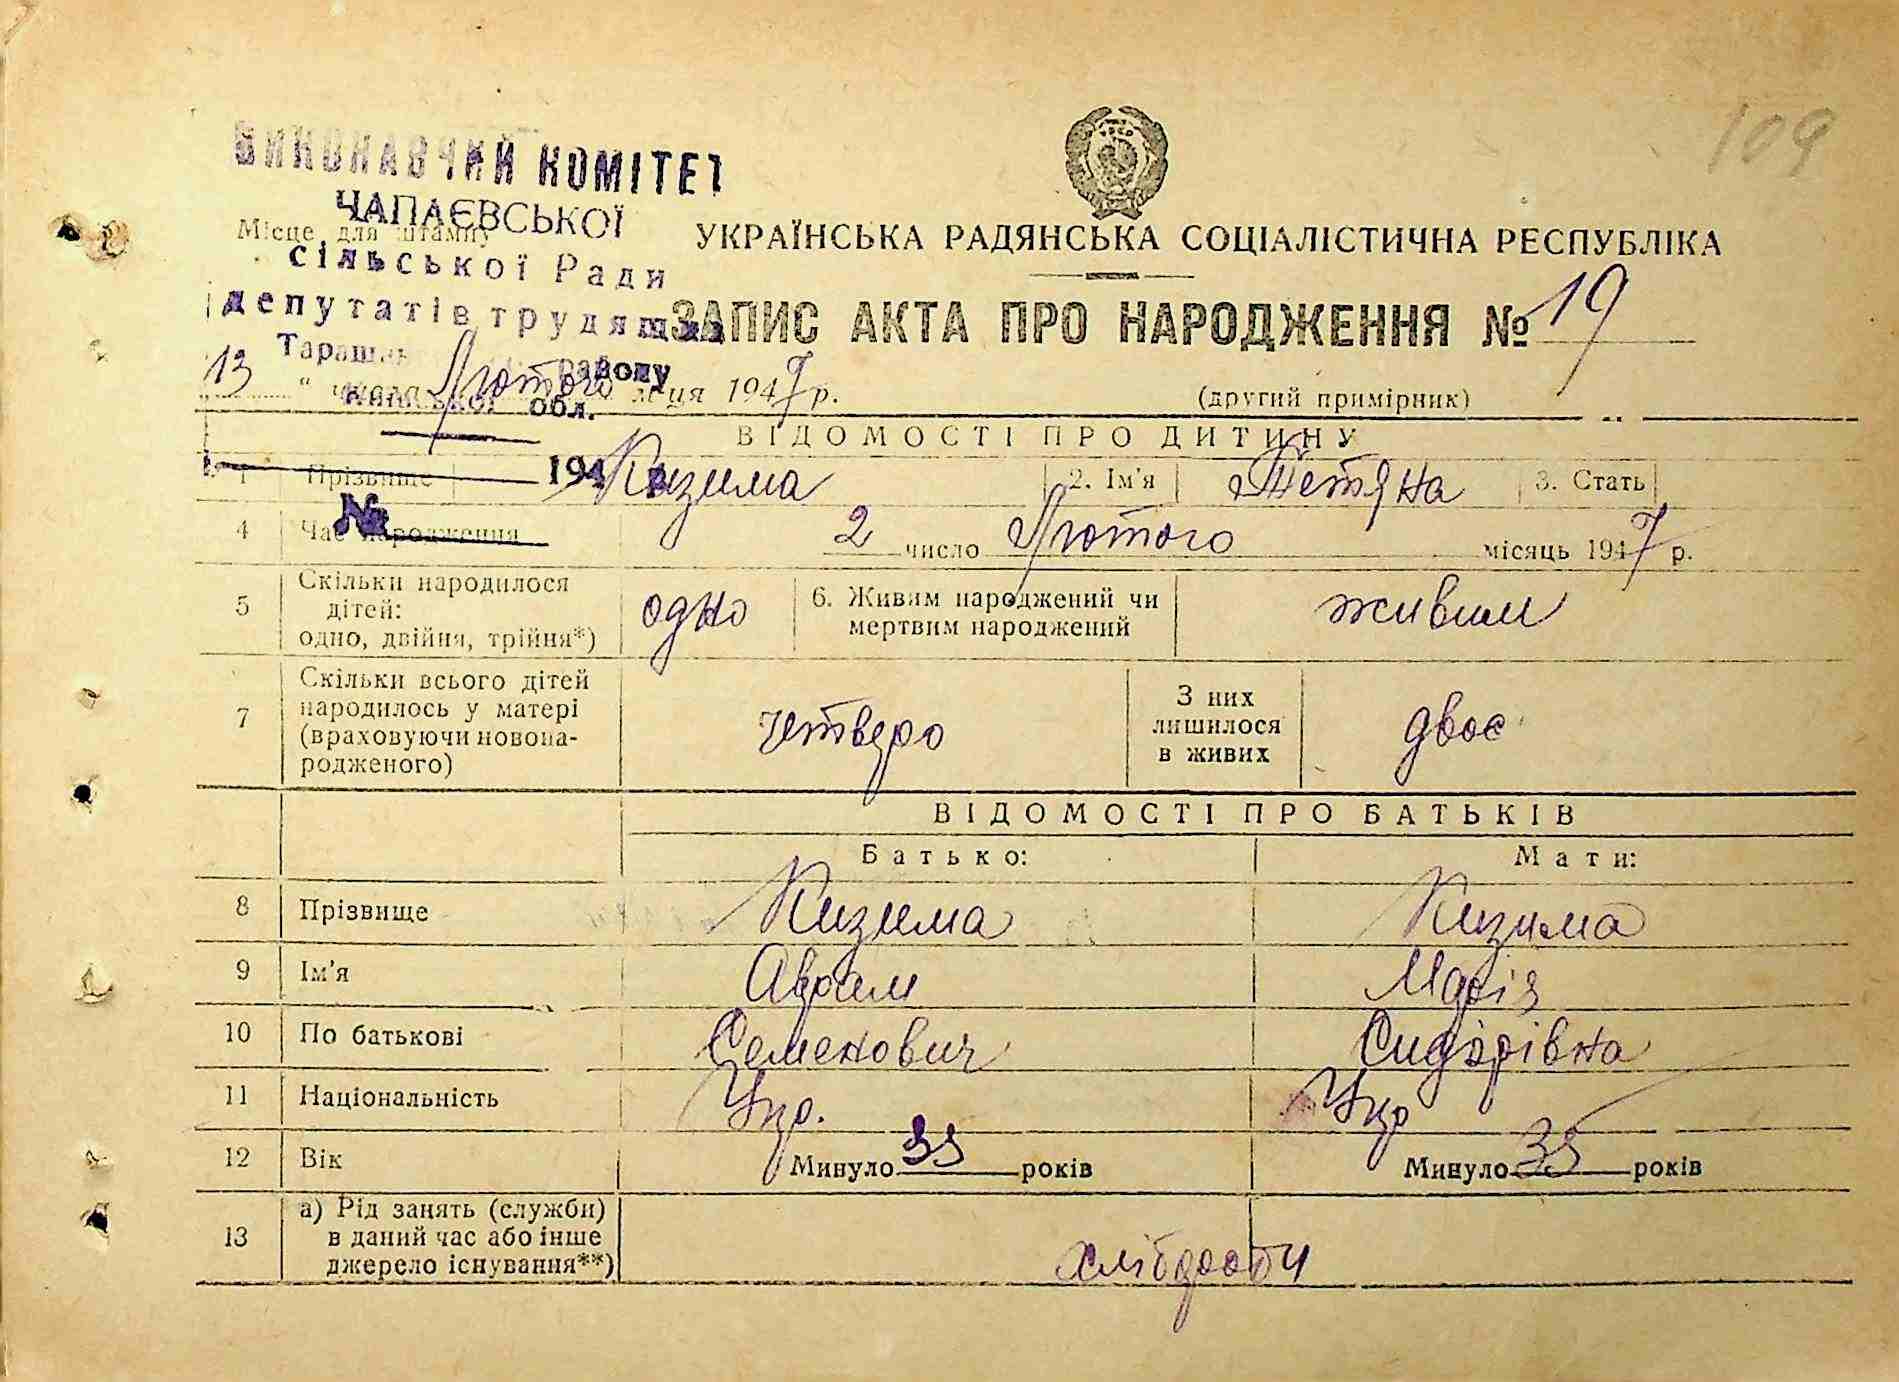 109
ВИКОНАВЧИЙ КОМІТЕТ
ЧАПАЄВСЬКОЇ
Місце для штампу
сільської Ради
депутатів трудящих
району
обл.
194 р.
№
УКРАЇНСЬКА РАДЯНСЬКА СОЦІАЛІСТИЧНА РЕСПУБЛІКА
ЗАПИС АКТА ПРО НАРОДЖЕННЯ № 19
13 " числа Лютого м-ця 1947 р.
(другий примірник)
ВІДОМОСТІ ПРО ДИТИНУ
1 Прізвище Кизима 2. Ім'я Тетяна 3. Стать
4 Час народження 2 число Лютого місяць 1947 р.
5 Скільки народилося дітей: одно, двійня, трійня*) одно 6. Живим народжений чи мертвим народжений живим
7 Скільки всього дітей народилось у матері (враховуючи новона-родженого) четверо З них лишилося в живих двоє
ВІДОМОСТІ ПРО БАТЬКІВ
Батько: Мати:
8 Прізвище Кизима Кизима
9 Ім'я Аврам Марія
10 По батькові Семенович Сидорівна
11 Національність Укр. Укр
12 Вік Минуло 35 років Минуло 35 років
13 а) Рід занять (служби) в даний час або інше джерело існування**)